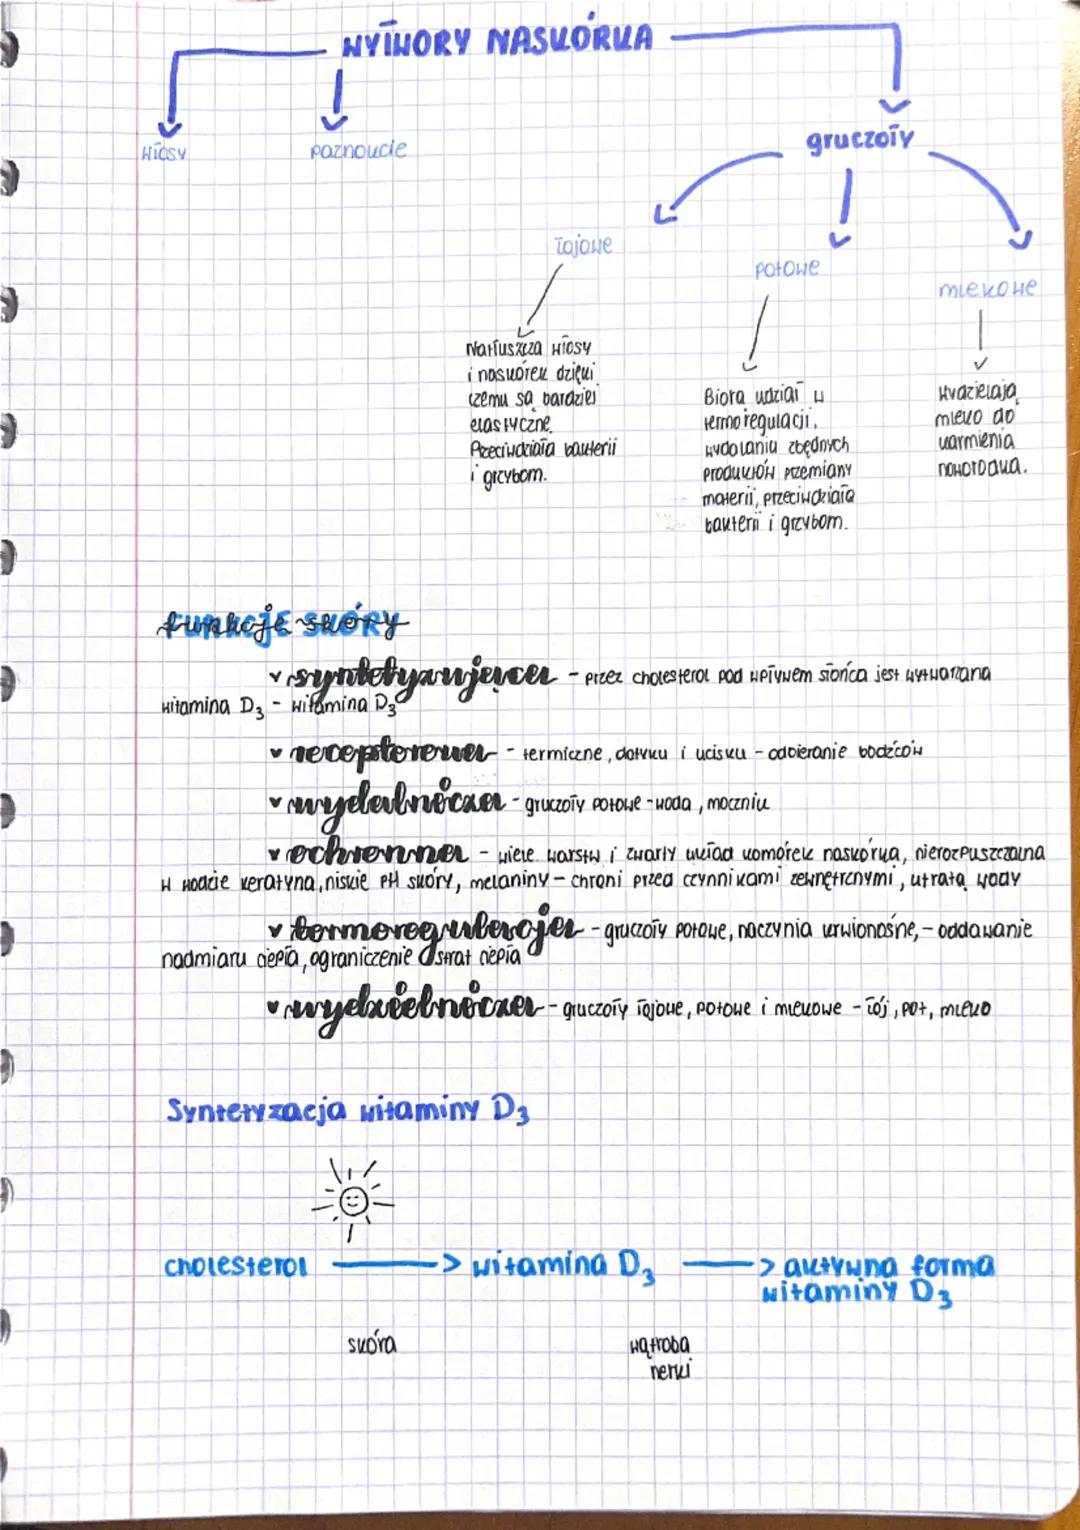 WYTWORY NASKÓRKA
włosy
paznokcie
gruczoły
łojowe
potowe
mlekowe
Natłuszcza włosy
i naskórek dzięki
czemu są bardziej
elastyczne.
Przeciwdziała bakterii
i grzybom.
Biorą udział w
termoregulacji,
wydalaniu zbędnych
produktów przemiany
materii, przeciwdziała
bakterii i grzybom.
Wydzielają
mleko do
karmienia
noworodka.
FUNKCJE SKÓRY
syntetyzująca - przez cholesterol pod wpływem słońca jest wytwarzana
witamina D3 - witamina D3
receptorowa - termiczne, dotyku i ucisku - odbieranie bodźców
wydalnicza - gruczoły potowe - woda, mocznik
ochronna - wiele warstw i zwarty układ komórek naskórka, nierozpuszczalna
w wodzie keratyna, niskie pH skóry, melaniny - chroni przed czynnikami zewnętrznymi, utratą wody
termoregulacja - gruczoły potowe, naczynia krwionośne, - oddawanie
nadmiaru ciepła, ograniczenie strat ciepła
wydzielnicza - gruczoły łojowe, potowe i mlekowe - łój, pot, mleko
Syntetyzacja witaminy D3
cholesterol ⟶ witamina D3 ⟶ aktywna forma
witaminy D3
skóra
wątroba
nerki